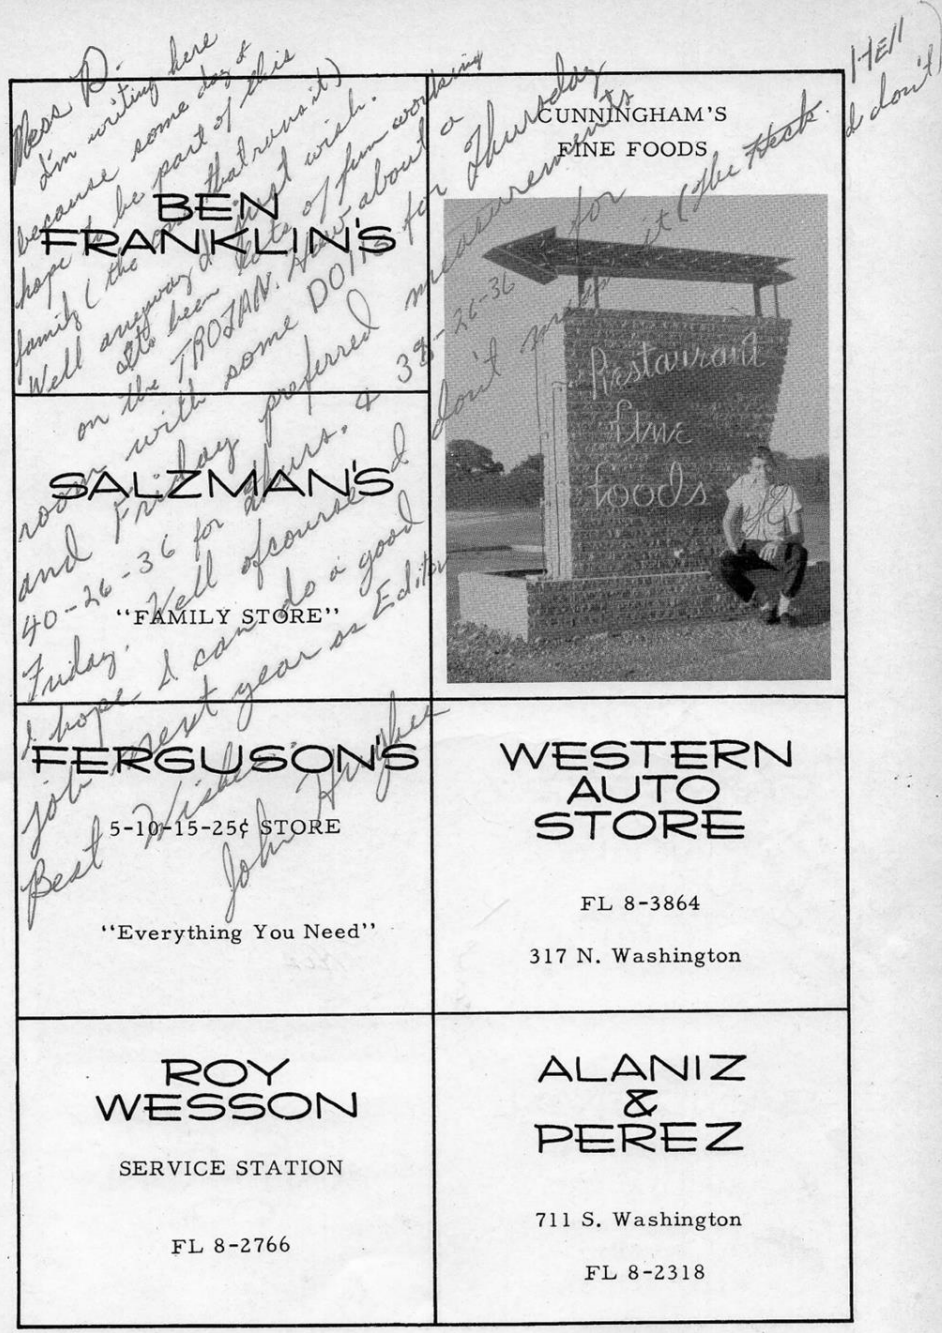 Mess D.
I'm writing here
because some day I
hope to be part of this
family (the one that runs it)
Well anyway best wish.
It's been lots of fun working
on the TROJAN. How about a
room with some DOILS for Thursday
and Friday preferred measurements
40-26-36 for & 38-26-36 for
Friday. Well of course I don't mean it (The Heck I don't)
HEll
I hope I can do a good
job next year as Editor
Best Wishes
John Hughes
BEN
FRANKLIN'S
CUNNINGHAM'S
FINE FOODS
Restaurant
fine
foods
SALZMAN'S
"FAMILY STORE"
FERGUSON'S
5-10-15-25¢ STORE
"Everything You Need"
WESTERN
AUTO
STORE
FL 8-3864
317 N. Washington
ROY
WESSON
SERVICE STATION
FL 8-2766
ALANIZ
&
PEREZ
711 S. Washington
FL 8-2318